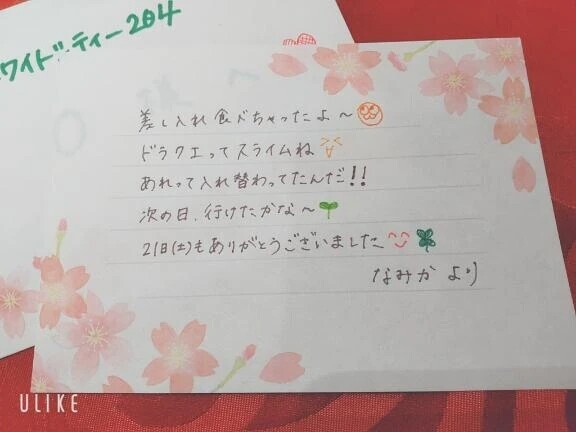 ワイドティー204
差し入れ食べちゃったよ〜
ドラクエってスライムね
あれって入れ替わってたんだ!!
次の日、行けたかな〜
21日(土)もありがとうございました
なみかより
ULIKE